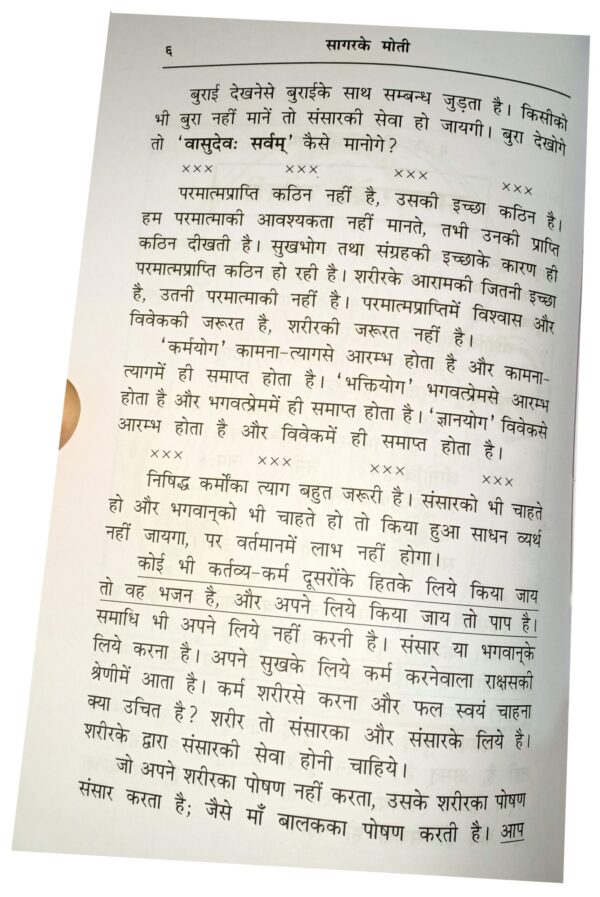 ६ सागरके मोती
बुराई देखनेसे बुराईके साथ सम्बन्ध जुड़ता है। किसीको
भी बुरा नहीं मानें तो संसारकी सेवा हो जायगी। बुरा देखोगे
तो ‘वासुदेवः सर्वम्’ कैसे मानोगे?
××× ××× ××× ×××
परमात्मप्राप्ति कठिन नहीं है, उसकी इच्छा कठिन है।
हम परमात्माकी आवश्यकता नहीं मानते, तभी उनकी प्राप्ति
कठिन दीखती है। सुखभोग तथा संग्रहकी इच्छाके कारण ही
परमात्मप्राप्ति कठिन हो रही है। शरीरके आरामकी जितनी इच्छा
है, उतनी परमात्माकी नहीं है। परमात्मप्राप्तिमें विश्वास और
विवेककी जरूरत है, शरीरकी जरूरत नहीं है।
‘कर्मयोग’ कामना-त्यागसे आरम्भ होता है और कामना-
त्यागमें ही समाप्त होता है। ‘भक्तियोग’ भगवत्प्रेमसे आरम्भ
होता है और भगवत्प्रेममें ही समाप्त होता है। ‘ज्ञानयोग’ विवेकसे
आरम्भ होता है और विवेकमें ही समाप्त होता है।
××× ××× ××× ×××
निषिद्ध कर्मोंका त्याग बहुत जरूरी है। संसारको भी चाहते
हो और भगवान्‌को भी चाहते हो तो किया हुआ साधन व्यर्थ
नहीं जायगा, पर वर्तमानमें लाभ नहीं होगा।
कोई भी कर्तव्य-कर्म दूसरोंके हितके लिये किया जाय
तो वह भजन है, और अपने लिये किया जाय तो पाप है।
समाधि भी अपने लिये नहीं करनी है। संसार या भगवान्‌के
लिये करना है। अपने सुखके लिये कर्म करनेवाला राक्षसकी
श्रेणीमें आता है। कर्म शरीरसे करना और फल स्वयं चाहना
क्या उचित है? शरीर तो संसारका और संसारके लिये है।
शरीरके द्वारा संसारकी सेवा होनी चाहिये।
जो अपने शरीरका पोषण नहीं करता, उसके शरीरका पोषण
संसार करता है; जैसे माँ बालकका पोषण करती है। आप